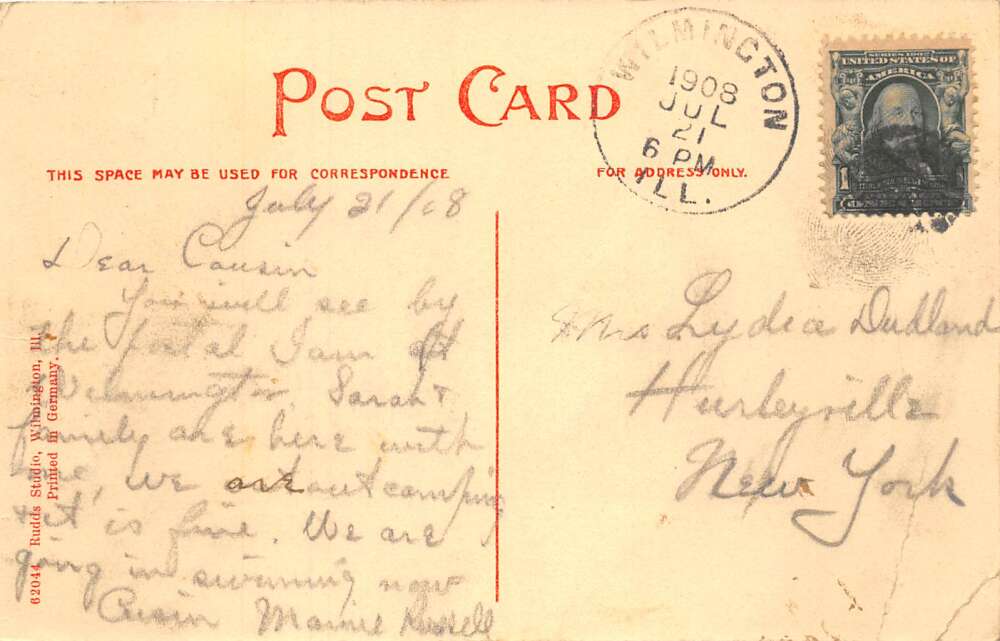 POST CARD
THIS SPACE MAY BE USED FOR CORRESPONDENCE
FOR ADDRESS ONLY.
WILMINGTON
1908
JUL
21
6 PM
ILL.
SERIES 1902
UNITED STATES OF
AMERICA
1
July 21/08
Dear Cousin
You will see by
the postal I am at
Wilmington Sarah &
family are here with
me, we are out camping
& it is fine. We are
going in swimming now
Cusin Mamie Russell
Mrs Lydia Dudland
Hurleyville
New York
62044 Rudds Studio, Wilmington, Ill.
Printed in Germany.